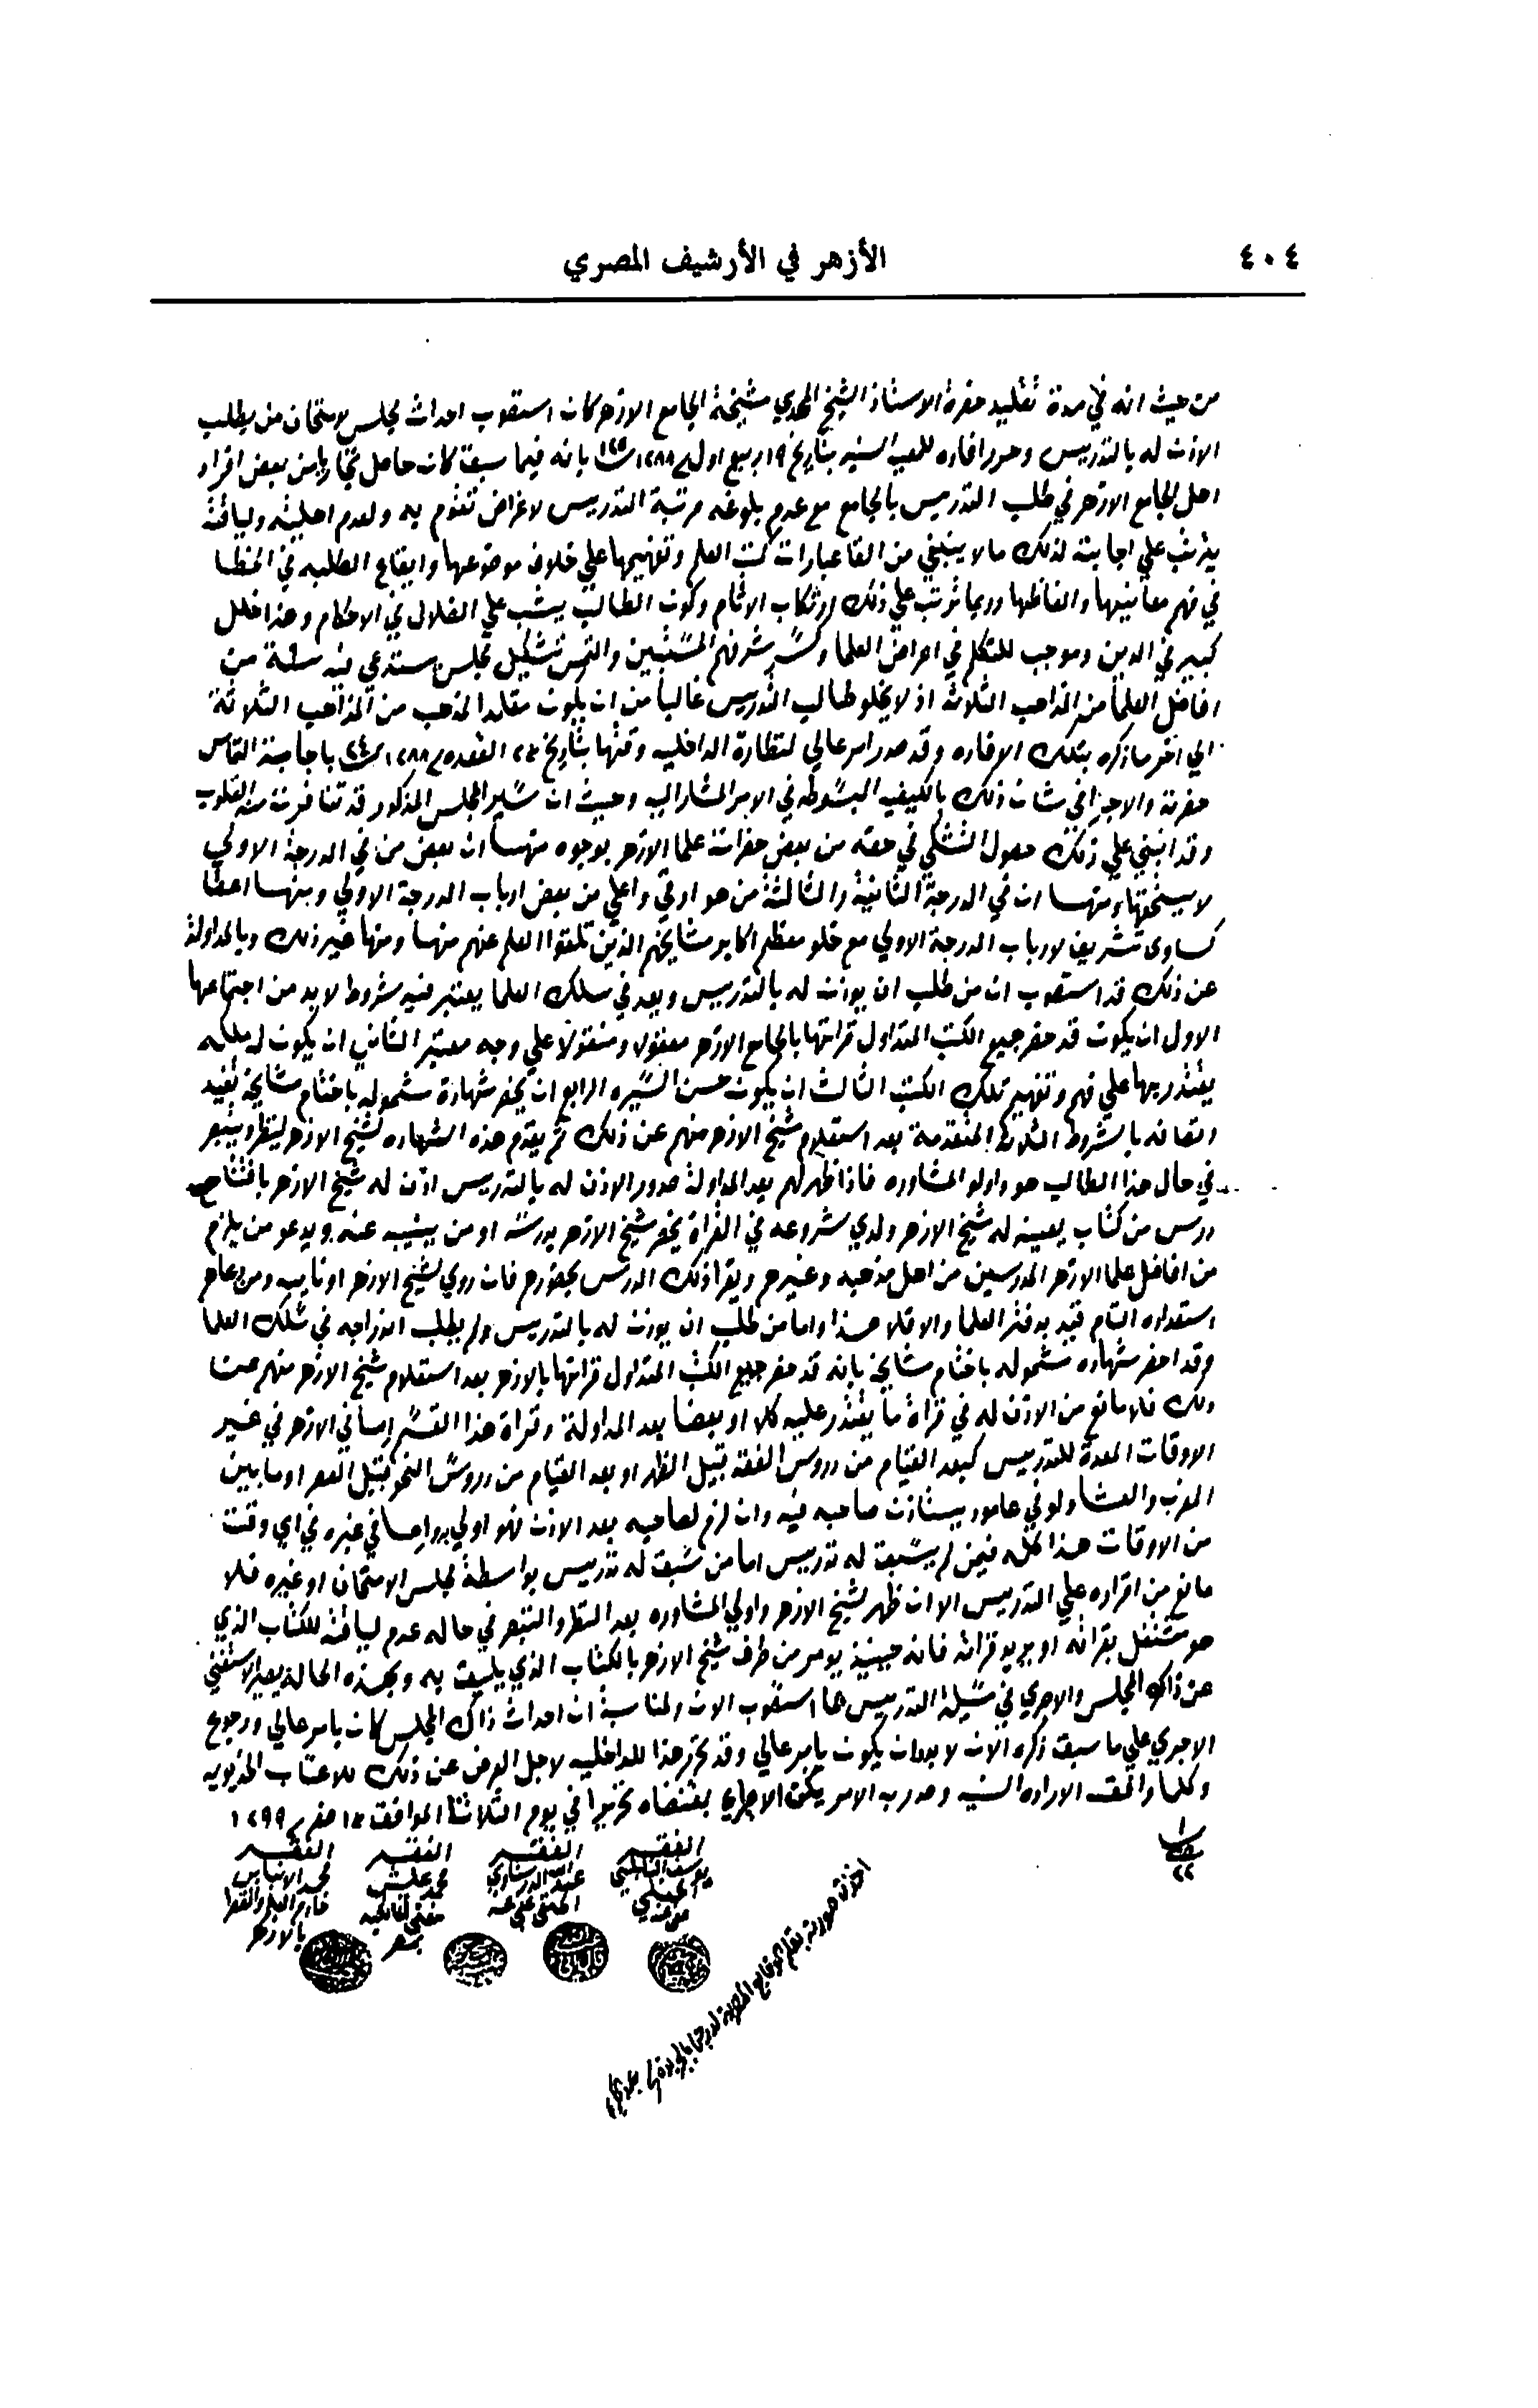 ٤٠٤
الأزهر في الأرشيف المصري
من حيث انه في مدة تقليد حضرة الاستاذ الشيخ المهدي مشيخة الجامع الازهر كان استصوب احداث مجلس لامتحان من يطلب
الاذن له بالتدريس وحرر افاده للمعيه السنيه بتاريخ ١٩ ربيع اول ١٢٨٨ بانه فيما سبق كان حاصل من بعض افراد
اهل الجامع الازهر في طلب التدريس بالجامع مع عدم بلوغه مرتبة التدريس لاغراض تقوم به ولعدم اهليته ولياقته
يترتب علي اجابته لذلك ما لا ينبغي من القا عبارات كتب العلم وتفهيمها علي خلاف موضوعها وايقاع الطلبه في الخطا
في فهم معانيها والفاظها وربما ترتب علي ذلك ارتكاب الاثام وكون الطالب يشب علي الضلال في الاحكام وهذا خلل
كبير في الدين وموجب للتكلم في اعراض العلما وكسر شرفهم والتمس تشكيل مجلس يستدعي فيه ستة من
افاضل العلما من المذاهب الثلاثه اذ لا يخلو طالب التدريس غالبا من ان يكون مقلد المذهب من المذاهب الثلاثة
الي اخر ما ذكره بتلك الافاده وقد صدر امر عالي لنظارة الداخليه وقتها بتاريخ ٢٣ القعده ١٢٨٨ باجابة التماس
حضرته والاجرا في شان ذلك بالكيفيه المبسوطه في الامر المشار اليه وحيث ان سير المجلس المذكور قد تنافرت منه القلوب
وقد انبني علي ذلك حصول التشكي في حقه من بعض حضرات علما الازهر بوجوه منها ان بعض من في الدرجة الاولي
لا يستحقها ومنها ان في الدرجة الثانية والثالثة من هو اوفي واعلي من بعض ارباب الدرجة الاولي ومنها اعطا
كساوي تشريف لارباب الدرجة الاولي مع خلو معظم اكابر مشايخهم الذين تلقوا العلم عنهم منها ومنها غير ذلك وبالمداولة
عن ذلك قد استصوب ان من طلب ان يوذن له بالتدريس ويعد في سلك العلما يعتبر فيه شروط لا بد من اجتماعها
الاول ان يكون قد حضر جميع الكتب المتداول قراءتها بالجامع الازهر معقولا ومنقولا علي وجه معتبر الثاني ان يكون له ملكه
يقتدر بها علي فهم وتفهيم تلك الكتب الثالث ان يكون حسن السيره الرابع ان يحضر شهادة مشموله باختام مشايخه تفيد
اتصافه بالشروط الثلاثة المتقدمة بعد استعلام شيخ الازهر منهم عن ذلك ثم يقدم هذه الشهاده لشيخ الازهر لينظر ويتبصر
في حال هذا الطالب هو واولو المشاوره فاذا ظهر لهم بعد المداولة صدور الاذن له بالتدريس اذن له شيخ الازهر بافتتاح
درس من كتاب يعينه له شيخ الازهر ولدي شروعه في القراة يحضر شيخ الازهر بدرسه او من ينيبه عنه ويدعو من يلزم
من افاضل علما الازهر المدرسين من اهل مذهبه وغيرهم ويقرا ذلك الدرس بحضورهم فان روي لشيخ الازهر او نايبه ومن دعاهم
استعداده التام قيد بدفتر العلما والا فلا هذا واما من طلب ان يوذن له بالتدريس ولم يطلب اندراجه في سلك العلما
وقد احضر شهاده مشموله باختام مشايخه بانه قد حضر جميع الكتب المتداول قراتها بالازهر بعد استعلام شيخ الازهر منهم عن
ذلك فلا مانع من الاذن له في قراة ما يقتدر عليه كلا او بعضا بعد المداولة وقراة هذا القسم اما في الازهر في غير
الاوقات المعدة للتدريس كبعد القيام من دروس الفقه قبيل الظهر او بعد القيام من دروس النحو قبيل العصر او ما بين
المغرب والعشا ولو في عامود يستاذن صاحبه فيه وان لزم لصاحبه بعد الاذن فهو اولي به واما في غيره في اي وقت
من الاوقات هذا كله فيمن لم يسبق له تدريس اما من سبق له تدريس بواسطة مجلس الامتحان او غيره فلا
مانع من اقراره علي التدريس الا ان ظهر لشيخ الازهر واولي المشاوره بعد النظر والتبصر في حاله عدم لياقته للكتاب الذي
هو مشتغل بقراته او يريد قراته فانه حينيذ يومر من طرف شيخ الازهر بالكتاب الذي يليق به وبهذه الحالة يصير الاستغني
عن ذاك المجلس والاجري في مسيلة التدريس بما استصوب الان ولمناسبة ان احداث ذاك المجلس كان بامر عالي ورجوع
الاجري علي ما سبق ذكره الان لا بد وان يكون بامر عالي وقد تحرر هذا للداخليه لاجل العرض عن ذلك للاعتاب الخديويه
وكلما وافقت الاراده السنيه وصدر به الامر يكون الاجراء بمقتضاه تحريرا في يوم الثلاثا الموافق ١٣ صفر ١٢٩٩
الفقير
يوسف النابلسي
الحنبلي
الفقير
عبد الله الدرستاوي
الحنفي عفي عنه
الفقير
محمد عليش
مفتي المالكيه
بمصر
الفقير
محمد الانبابي
خادم العلم والفقرا
بالازهر